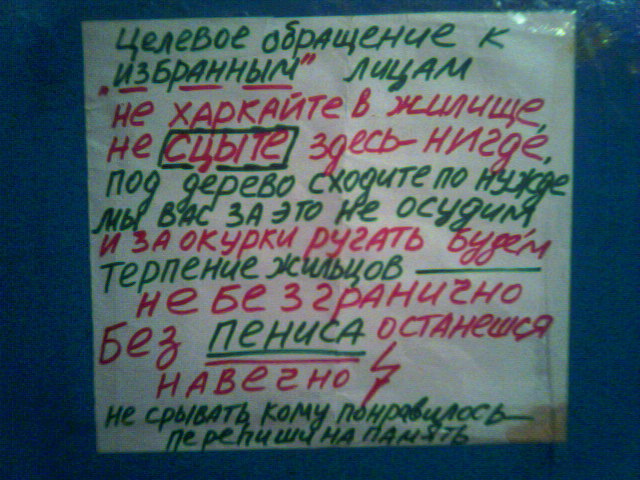 Целевое обращение к
"избранным" лицам
не харкайте в жилище,
не сцыте здесь- нигде,
под дерево сходите по нужде
мы вас за это не осудим
и за окурки ругать будем
терпение жильцов
не безгранично
Без пениса останешся
навечно
не срывать кому понравилось-
перепиши на память